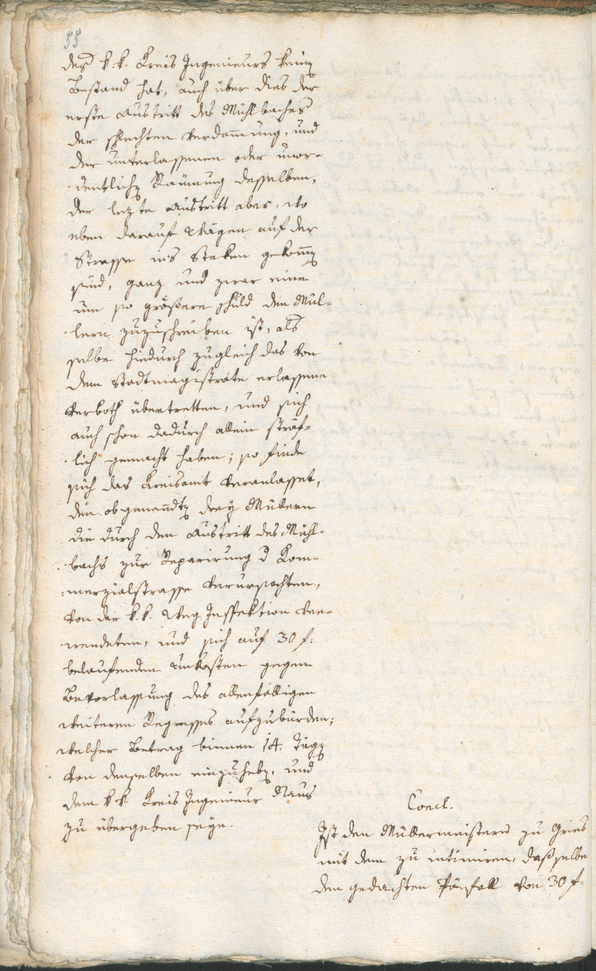 55
des k. k. Kreis Ingenieurs keinen
Bestand hat, auch über dies der
erste Austritt des Mühlbaches
der schlechten Verdammung, und
der unterlassenen oder unor-
dentlichen Räumung desselben,
der lezte Austritt aber, wo
eben darauf Wägen auf der
Strasse ins Steken gekommen
sind, ganz und zwar eine
um so größere schuld den Mül-
lern zuzuschreiben ist, als
selbe hiedurch zugleich das von
dem Stadtmagistrate erlassene
Verboth übertretten, und sich
auch schon dadurch allein sträf-
lich gemacht haben; so finde
sich das Kreisamt veranlasset,
den obgenannten drey Müllern
die durch den Austritt des Mühl-
bachs zur Reparirung d Kom-
merzialstrasse verursachten,
von der k. k. Weg Inspektion ver-
wendeten, und sich auf 30 f.
belaufenden Unkosten gegen
Bevorlassung des allenfälligen
weiteren Regresses aufzubürden;
welcher Betrag binnen 14. Tägen
von denselben einzuheben, und
dem k. k. Kreis Ingenieur
zu übergeben seye.
Concl.
Ist den Müllermeistern zu Gries
mit dem zu intimiren, daß selbe
den gedachten von 30 f.